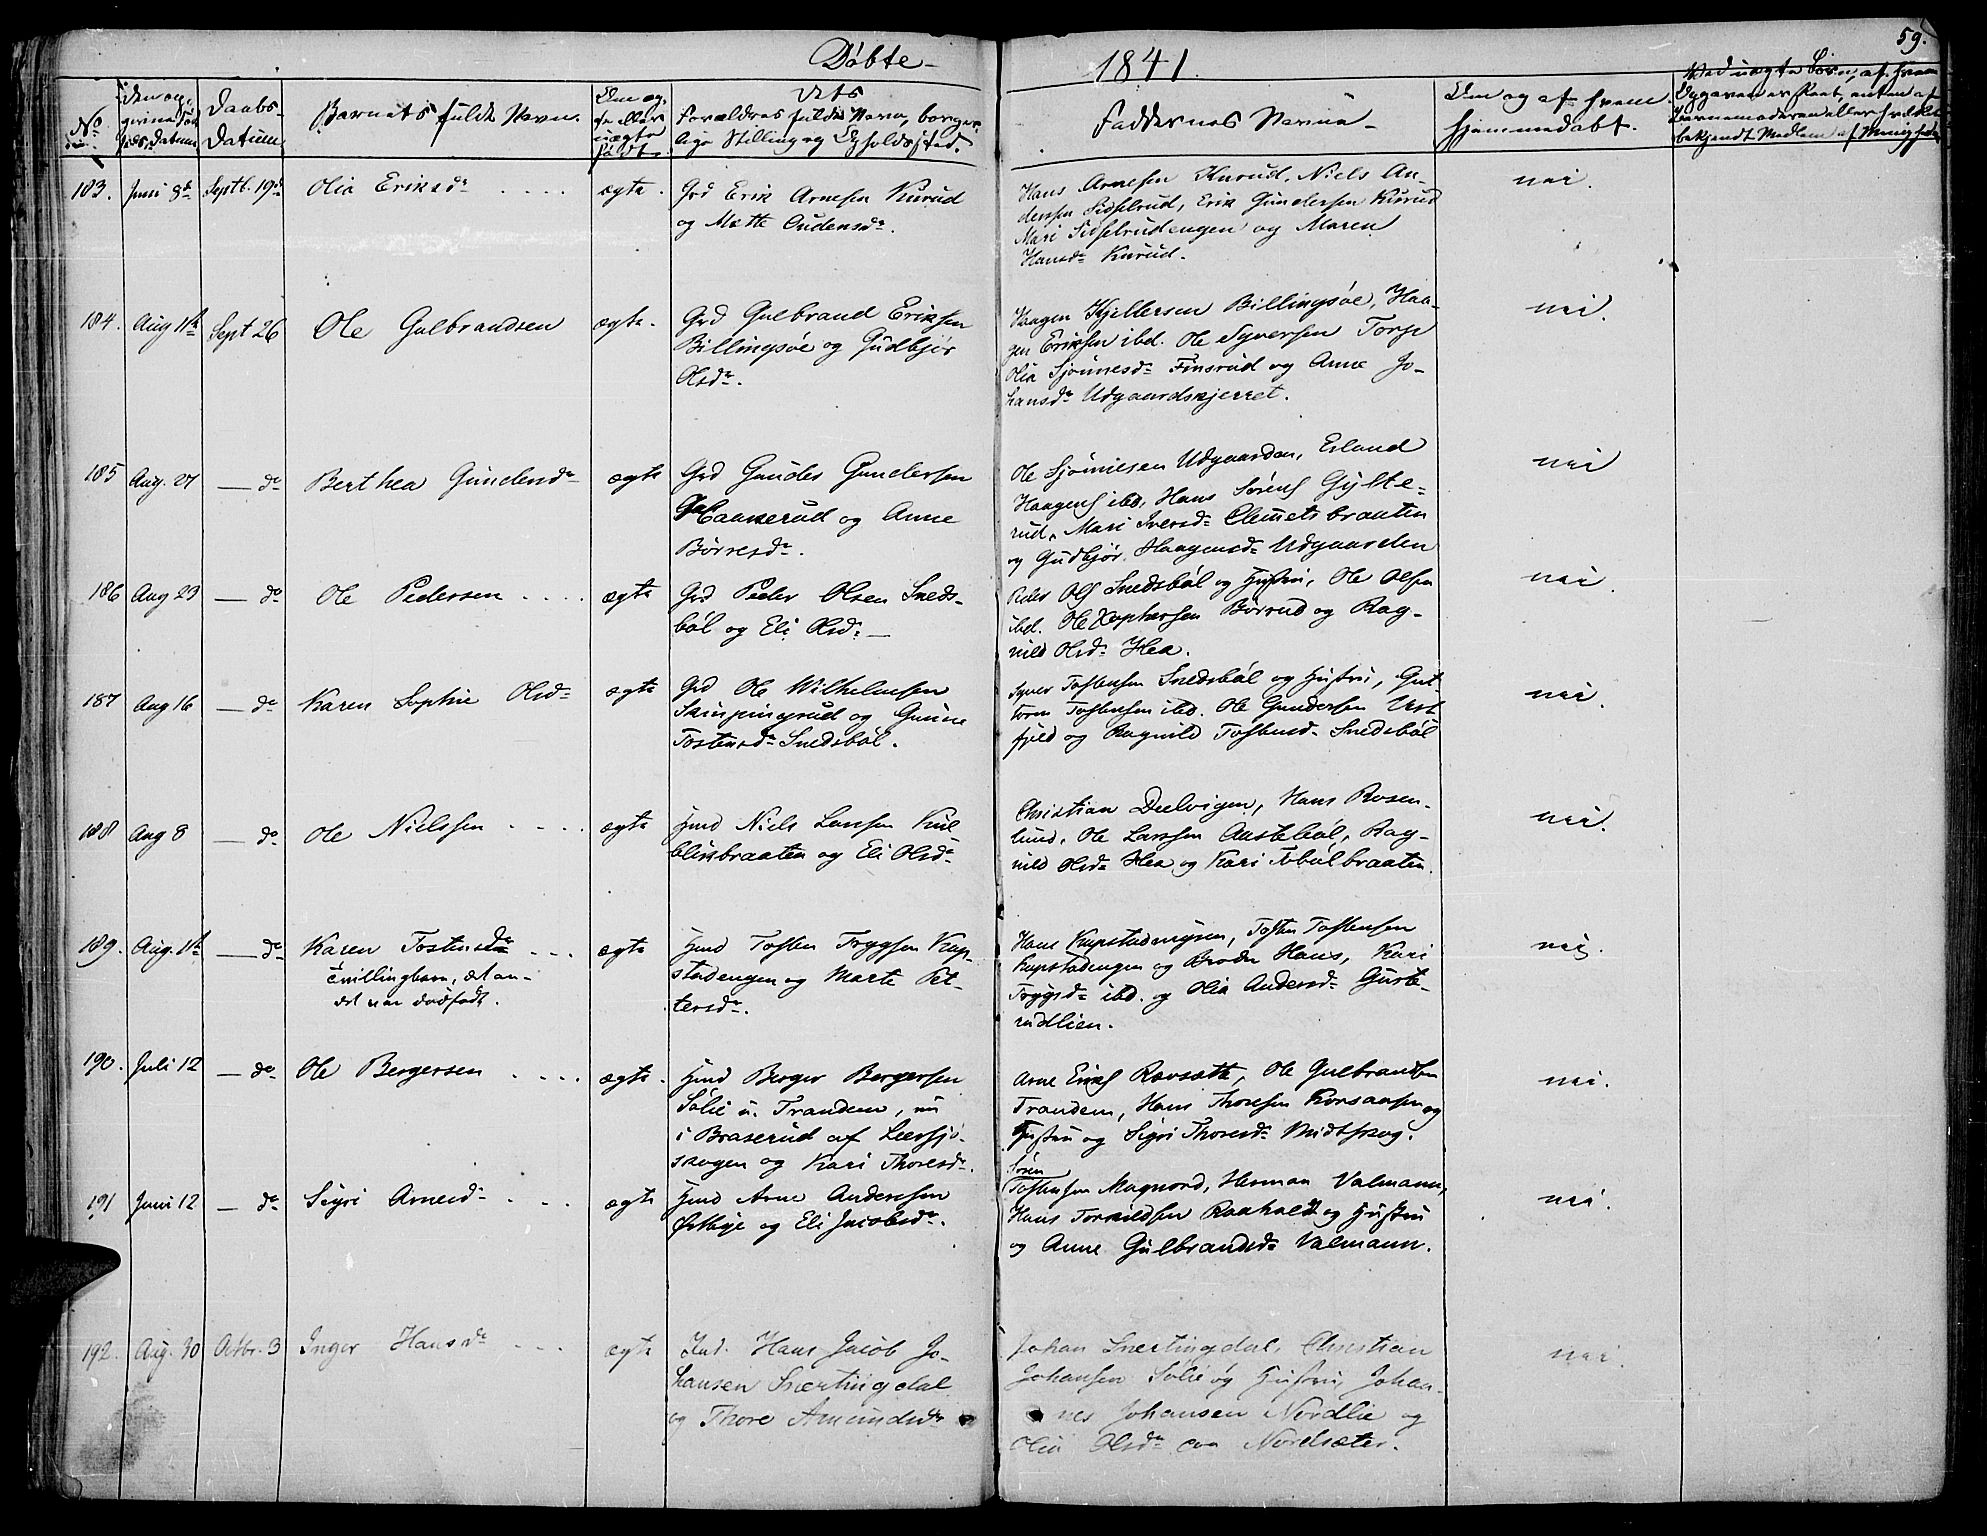 Døbte
1841
59.
No
Daabs-
Datum
Barnets fulde Navn.
Dets
Forældres fulde Navn, borger-
lige Stilling og Opholdssted.
Faddernes Navne
Om og af hvem
hjemmedøbt.
183. Juni 8de Septb. 19d Olia Eriksdr ægte. Grd Erik Arnesen Kurud
og Mette Gudensdr.
Hans Arnesen Kurud, Niels An-
derssen Sidselrud, Erik Gundersen Kurud
Mari Sidselrudengen og Maren
Hansdr Kurud.
nei.
184. Aug 11te Sept 26 Ole Gulbrandsen ægte. Grd Gulbrand Eriksen
Billingsøe og Gudbjør
Olsdr.
Haagen Kjeldersen Billingsøe, Haa-
gen Eriksen ibd. Ole Syversen Torp
Olia Sjønnesdr Finsrud og Anne Jo-
hansdr Udgaardskjerret.
nei.
185 Aug. 27 — do Berthea Gundersdr ægte Grd Gunder Gundersen
Haakerud og Anne
Børresdr.
Ole Sjønnesen Udgaarden, Erland
Haagens ibd, Hans Sørens Gylte-
rud, Mari Iversdr Clemetsbraaten
og Gudbjør Haagensdr Udgaarden
nei
186 Aug 29 — do Ole Pedersen ægte Grd Peder Olsen Sneds-
bøl og Eli Olsdr —
Peder Ols Snedsbøl og Hustru, Ole Olsen
ibd. Ole Xophersen Børrud og Rag-
nild Olsdr Hea.
nei.
187 Aug 16 — do Karen Sophie Olsdr ægte Grd Ole Wilhelmsen
Skinpingrud og Gunne
Tostensdr Snedsbøl.
Syver Tostensen Snedsbøl og Hustru, Gut-
torm Tostensen ibd. Ole Gundersen Vest
fjeld og Ragnild Tostensdr Snedsbøl
nei.
188 Aug 8 — do Ole Nielssen ægte Hmd Niels Larssen Kul-
bliksbraaten og Eli Olsdr
Christian Dulvigen, Hans Rosen-
lund, Ole Larssen Austebøl, Rag-
nild Olsdr Hea og Kari Tobølbraaten.
nei.
189. Aug. 11te — do Karen Tostensdr ægte Hmd Tosten Trygsen Kop-
stadengen og Marte Pet-
tersdr.
Tvillingbarn, det an-
det var dødfødt.
Hans Kopstadmyren, Tosten Tostensen
Kopstadengen og Broder Hans, Kari
Trygsdr ibd. og Olia Andersdr Guste-
rudlien.
nei.
190. Juli 12 — do Ole Bergersen ægte. Hmd Berger Bergersen
Sølie u. Trandem, nu
i Braserud af Leersjø-
skogen og Kari Thoresdr.
Arne Eriks Ravsætt, Ole Gulbrandsen
Trandem, Hans Thoresen Korsaasen og
Hustru og Sigri Thoresdr Midtskog.
nei.
191 Juni 12 — do Sigri Arnesdr ægte Hmd Arne Anderssen
Østbye og Eli Jacobsdr.
Søren
Tostensen Magnord, Herman Valmann,
Hans Torkildsen Raaholdt og Hustru
og Anne Gulbrandsdr Valmann.
nei.
192. Aug. 30 Octbr. 3 Inger Hansdr ægte Ind. Hans Jacob Jo-
hansen Snertingdal
og Thore Amundsdr
Johan Snertingdal, Christian
Johansen Sølie og Hustru, Johan-
nes Johansen Nordlie og
Olia Olsdr paa Nordsæter.
nei.